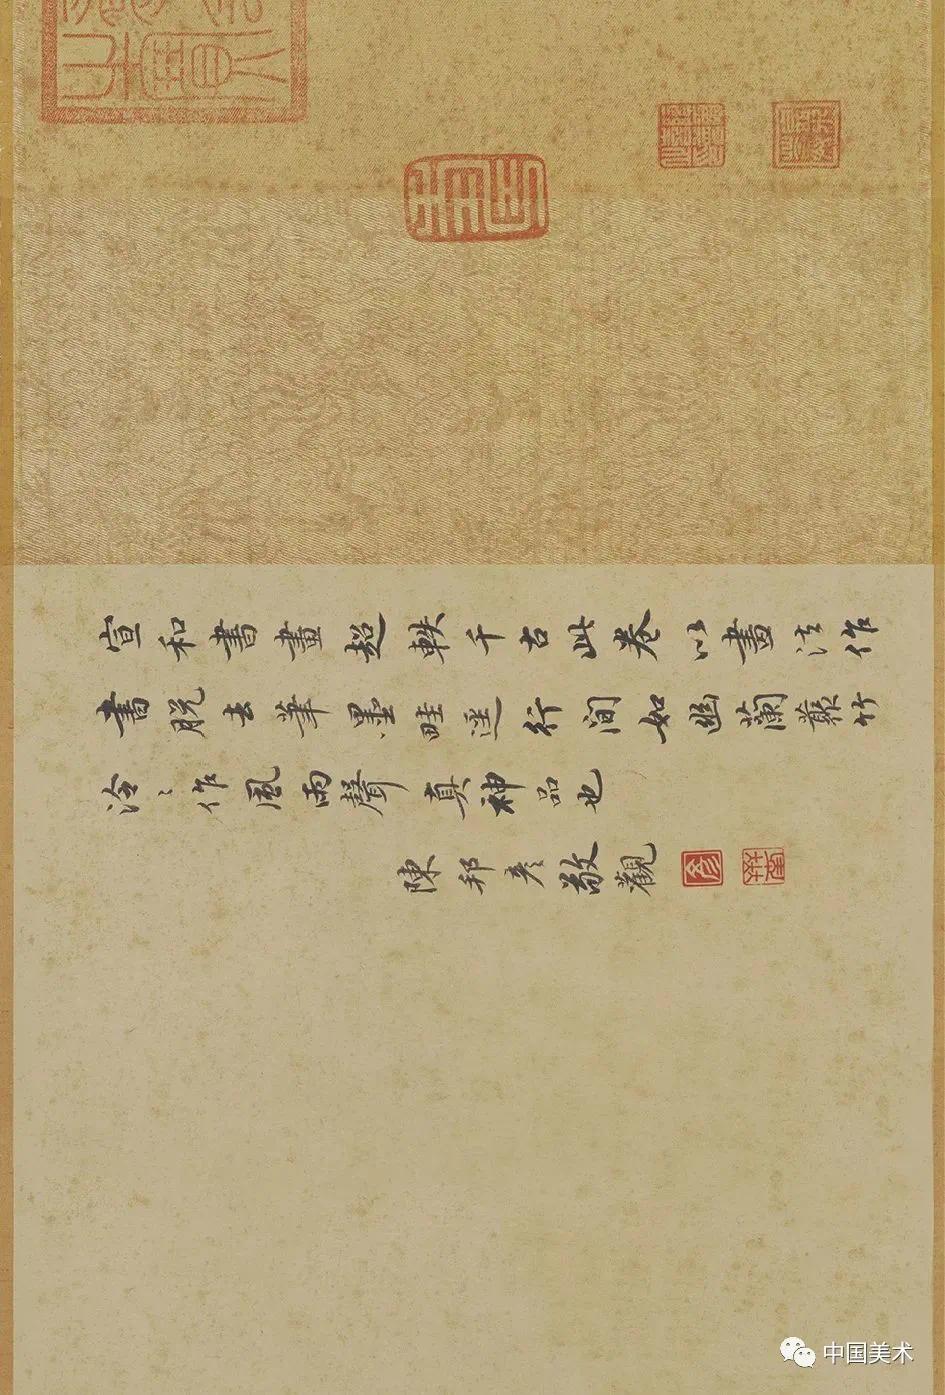 宣和書畫超軼千古此卷以畫法作
書脫去筆墨畦逕行間如幽蘭叢竹
泠〻作風雨聲真神品也
陳邦彥敬觀
中国美术